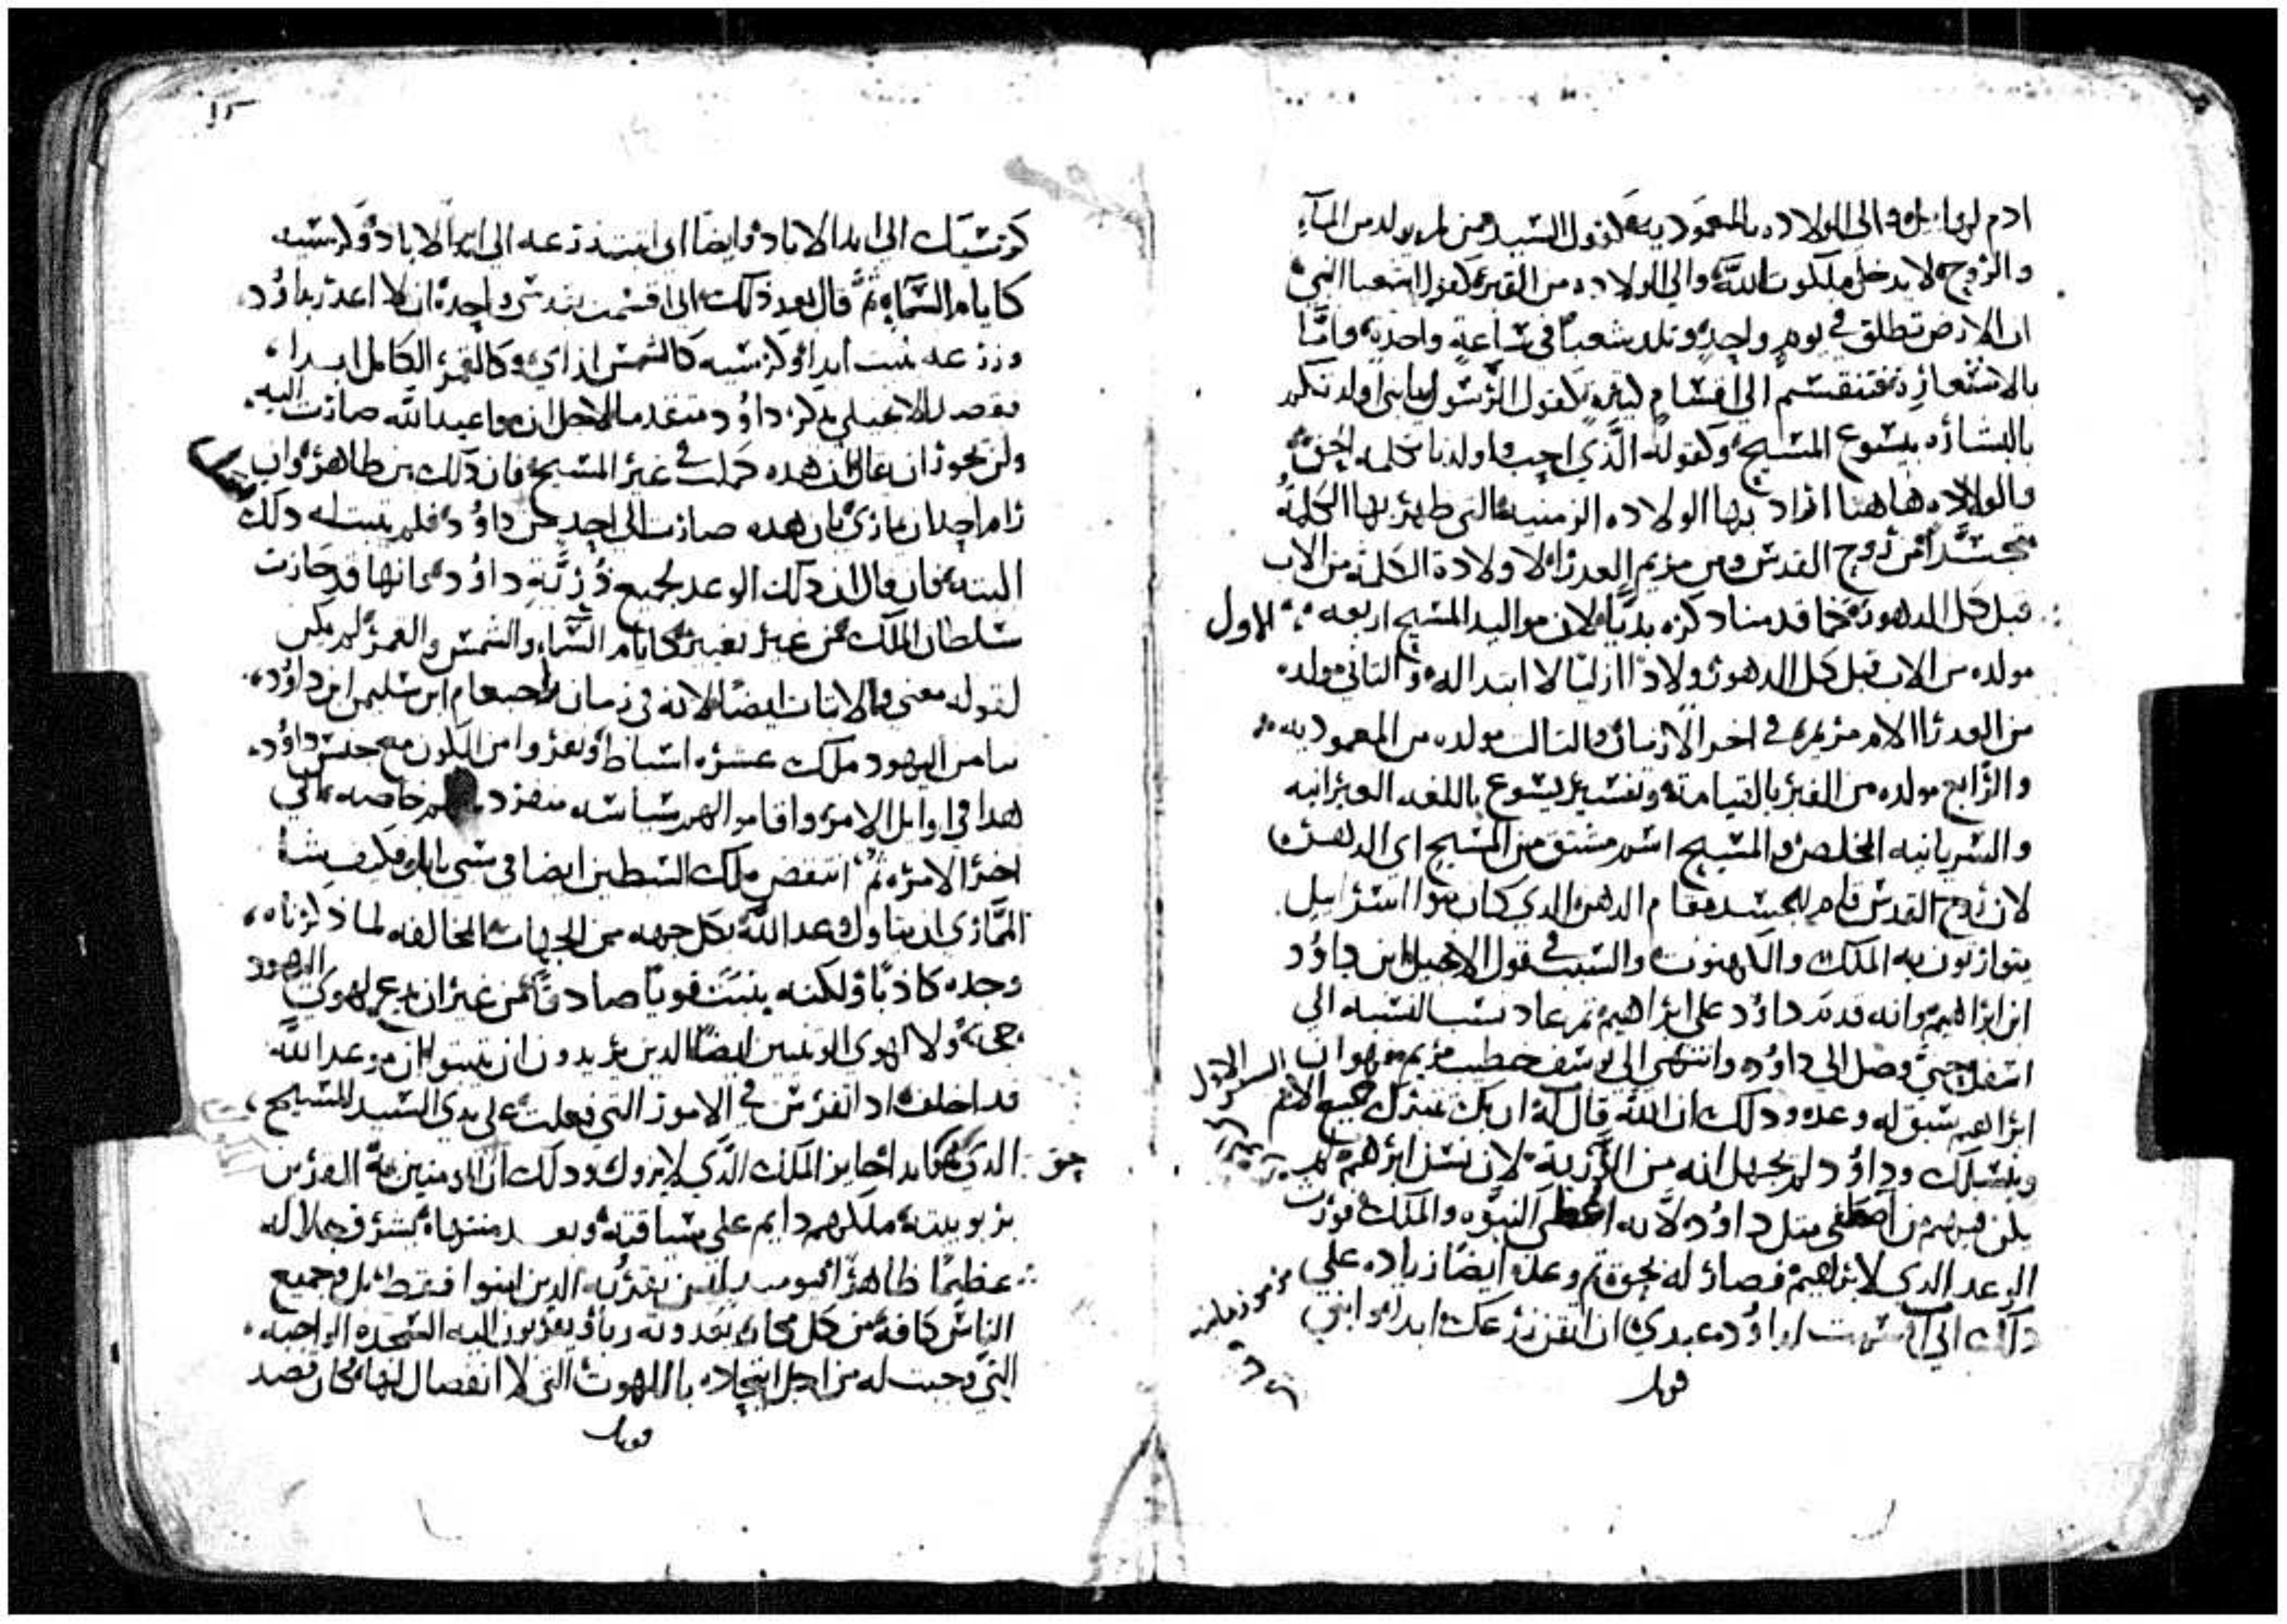 ادم لو‍ا والى الولاده بالمعموديه كقول السيد من لم يولد من المآء
والروح لا يدخل ملكوت الله والى الولاده من القبر كقول اشعيا النبي
ان الارض تطلق في يوم واحد وتلد شعبا في ساعة واحده واما
بالاستعاره فتنقسم الى اقسام كثيره كقول الرسول يابني اولد تكم
بالبشاره بيسوع المسيح وكقوله الذي احب ولدنا بكلمه الحق
والولاده هاهنا اراد بها الولاده الزمنيه التي ظهر بها الكلمة
متجسدا من روح القدس ومن مريم العدرا لا ولادة الكلمه من الاب
قبل كل الدهور كما قدمنا دكره بديا لان مواليد المسيح اربعه الاول
مولده من الاب قبل كل الدهور ولادا ازليا لا ابتدا له والتاني مولده
من العدرا الام مريم في اخر الازمان والتالت مولده من المعموديه
والرابع مولده من القبر بالقيامه وتفسير يسوع باللغه العبرانيه
والسريانيه المخلص والمسيح اسم مشتق من المسيح اي الدهن
لان روح القدس قام للجسد مقام الدهن الدي كان بنوا اسرايل
يتوارتون به الملك والكهنوت والسبب في قول الانجيل ابن داوود
ابن ابراهيم وانه قدم داوود على ابراهيم تم عاد نسب النسبه الى
اسفل حتى وصل الى داوود وانتهى الى يوسف خطيب مريم فهو ان
ابراهيم سبق له وعده ودلك ان الله قال له ان بك تتبرك جميع الامم
وبنسلك وداوود لم يجهل انه من الذرية لان نسل ابرهيم لم
يكن فيهم من اصطفى متل داوود لانه اعطى النبوه والملك فورت
الوعد الدي لابراهيم فصار له نحوه تم وعده ايضا زياده على
دلك اني اقسمت لداوود عبدي ان اتقن زرعك ابدا وابني
قوبل
السفر الاول
مزمور
كرسيك الى ابد الاباد وايضا اني اتبت زرعه الى ابد الاباد وكرسيه
كايام السماء ثم قال بعد ذلك اني اقسمت بقدسي واحده ان لا اغدر بداوود
وزرعه يتبت ابدا وكرسيه كالشمس ازاي وكالقمر الكامل ابدا
فقصد الانجيلي بذكر داوود متقدما لاجل ان مواعيد الله صارت اليه
ولن يجوز ان يقال ان هده كملت في غير المسيح فان دلك بين ظاهر وان
رام احد ان يماري بان هده صارت الى احد من داوود فلم يتبت له دلك
البته فان قال ان دلك الوعد لجميع ذرية داوود بانها قد حازت
سلطان الملك من غير تغيير كايام السماء والشمس والقمر لم يكن
لقوله معنى ولا اتبات ايضا لانه في زمان راحبعام ابن سليمن ابن داوود
سا من اليهود ملك عشره اسباط ونفروا من الكون مع جنس داوود
هدا في اوايل الامر واقاموا لهم سياسه منفرده لهم خاصه الى
اخر الامر ثم انتقض ملك السبطين ايضا في سبي بابل فكيف يشا
المماري ان يتاول وعد الله بكل جهه من الجهات المخالفه لما ذكرناه
وجده كاذبا ولكنه يتبت قويا صادقا من غير ان يدع لهوى اليهود
حجه ولا لهوى الوتنيين ايضا الدين يريدون ان يتبتوا ان موعد الله
قد اخلف اد تفرس في الامور التي فعلت على يدي السيد المسيح
حق الدي هو بدا حايز الملك الذي لا يزول ودلك ان المومنين به المقرين
بربوبيته ملكهم دايم على سياقته وبعد منتهاه بشرف جلاله
عظيما ظاهرا ليس تقربه الدين امنوا فقط بل وجميع
الناس كافه من كل مكان يعدونه ربا ويقربون اليه السجده الواجبه
التي وجبت له من اجل اتحاده باللهوت التي لا انفصال لها فكان قصد
قوبل